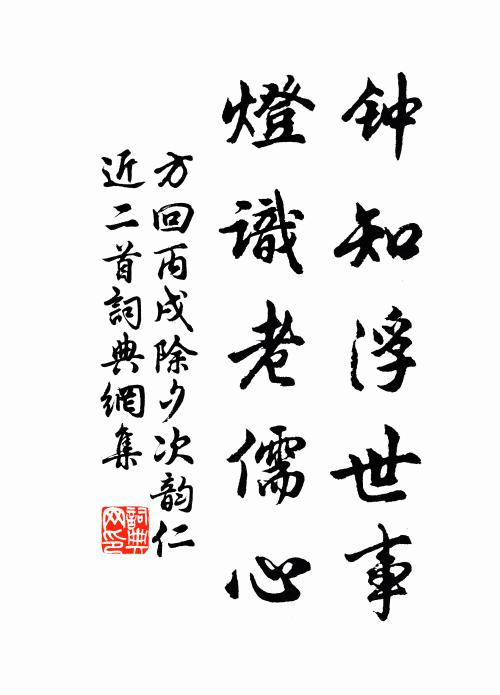 钟知浮世事
燈識老儒心
方回丙戌除夕次韵仁
近二首詞典網集
詞典
网印